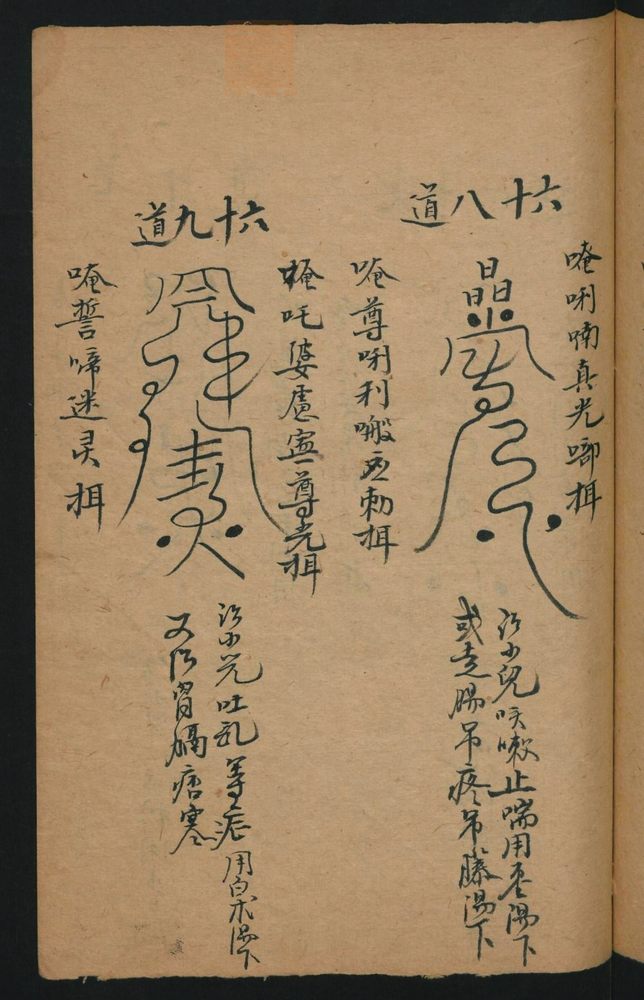 六十八道
唵唎喃真光唧揖
唵尊唎利囖勅揖
治小兒咳嗽止喘用枣湯下
或走腸吊疼吊藤湯下
六十九道
唵吒婆盧尊光揖
唵誓啼迷灵揖
治小児吐乱等症用白朮湯下
又治胃膈痞寒